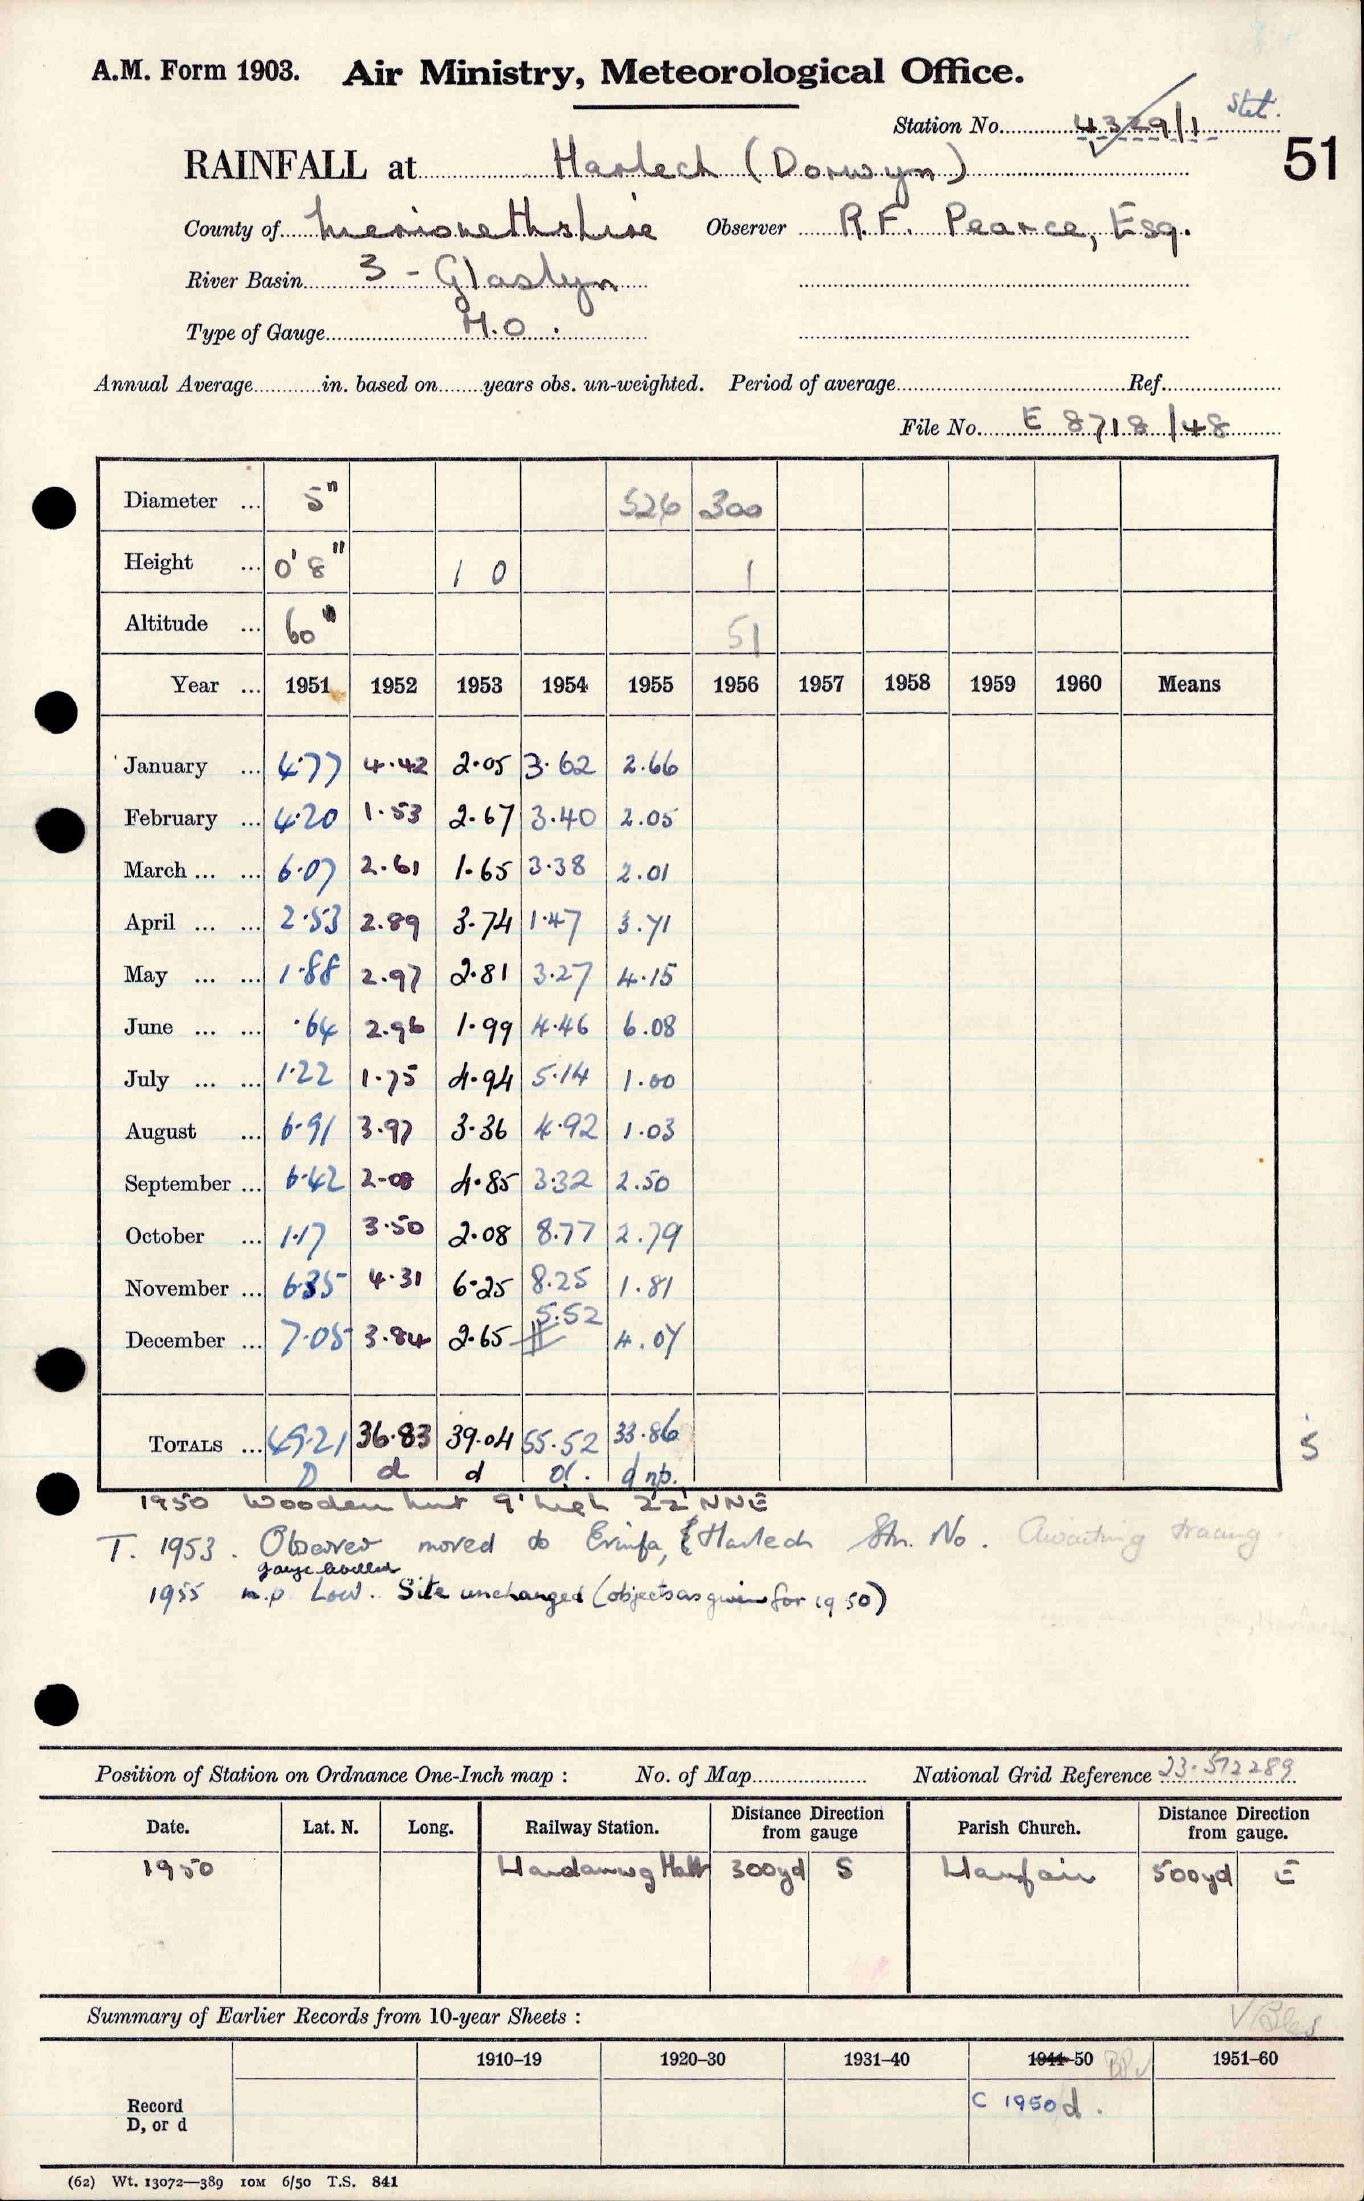 A.M. Form 1903. Air Ministry, Meteorological Office.
Station No. 4329/1 Stet.
51
RAINFALL at Harlech (Dorwyn)
County of Merionethshire Observer R.F. Pearce, Esq.
River Basin 3 - Glaslyn
Type of Gauge M.O.
Annual Average in. based on years obs. un-weighted. Period of average Ref.
File No. E 8718/48
Diameter ... 5" 526 300
Height ... 0' 8" 1 0 1
Altitude ... 60" 51
Year ... 1951 1952 1953 1954 1955 1956 1957 1958 1959 1960 Means
January ... 4.77 4.42 2.05 3.62 2.66
February ... 4.20 1.53 2.67 3.40 2.05
March ... ... 6.07 2.61 1.65 3.38 2.01
April ... ... 2.53 2.89 3.74 1.47 3.71
May ... ... 1.88 2.97 2.81 3.27 4.15
June ... ... .64 2.96 1.99 4.46 6.08
July ... ... 1.22 1.75 4.94 5.14 1.00
August ... 6.91 3.97 3.36 4.92 1.03
September ... 6.42 2.08 4.85 3.32 2.50
October ... 1.17 3.50 2.08 8.77 2.79
November ... 6.35 4.31 6.25 8.25 1.81
December ... 7.05 3.84 2.65 5.52 4.07
TOTALS ... 49.21 36.83 39.04 55.52 33.86
D d d d. d np.
5
1950 Wooden hut 9' high 22' NNE
T. 1953. Observer moved to Erinfa, Harlech Stn. No. Awaiting tracing.
gauge levelled
1955 n.p Low. Site unchanged (objects as given for 1950)
Position of Station on Ordnance One-Inch map : No. of Map National Grid Reference 23.572289
Date. Lat. N. Long. Railway Station. Distance Direction from gauge Parish Church. Distance Direction from gauge.
1950 Llandanwg Halt 300yd S Llanfair 500yd E
Summary of Earlier Records from 10-year Sheets :
1910–19 1920–30 1931–40 1941–50 1951–60
Record
D, or d C 1950 d.
(62) Wt. 13072—389 10M 6/50 T.S. 841